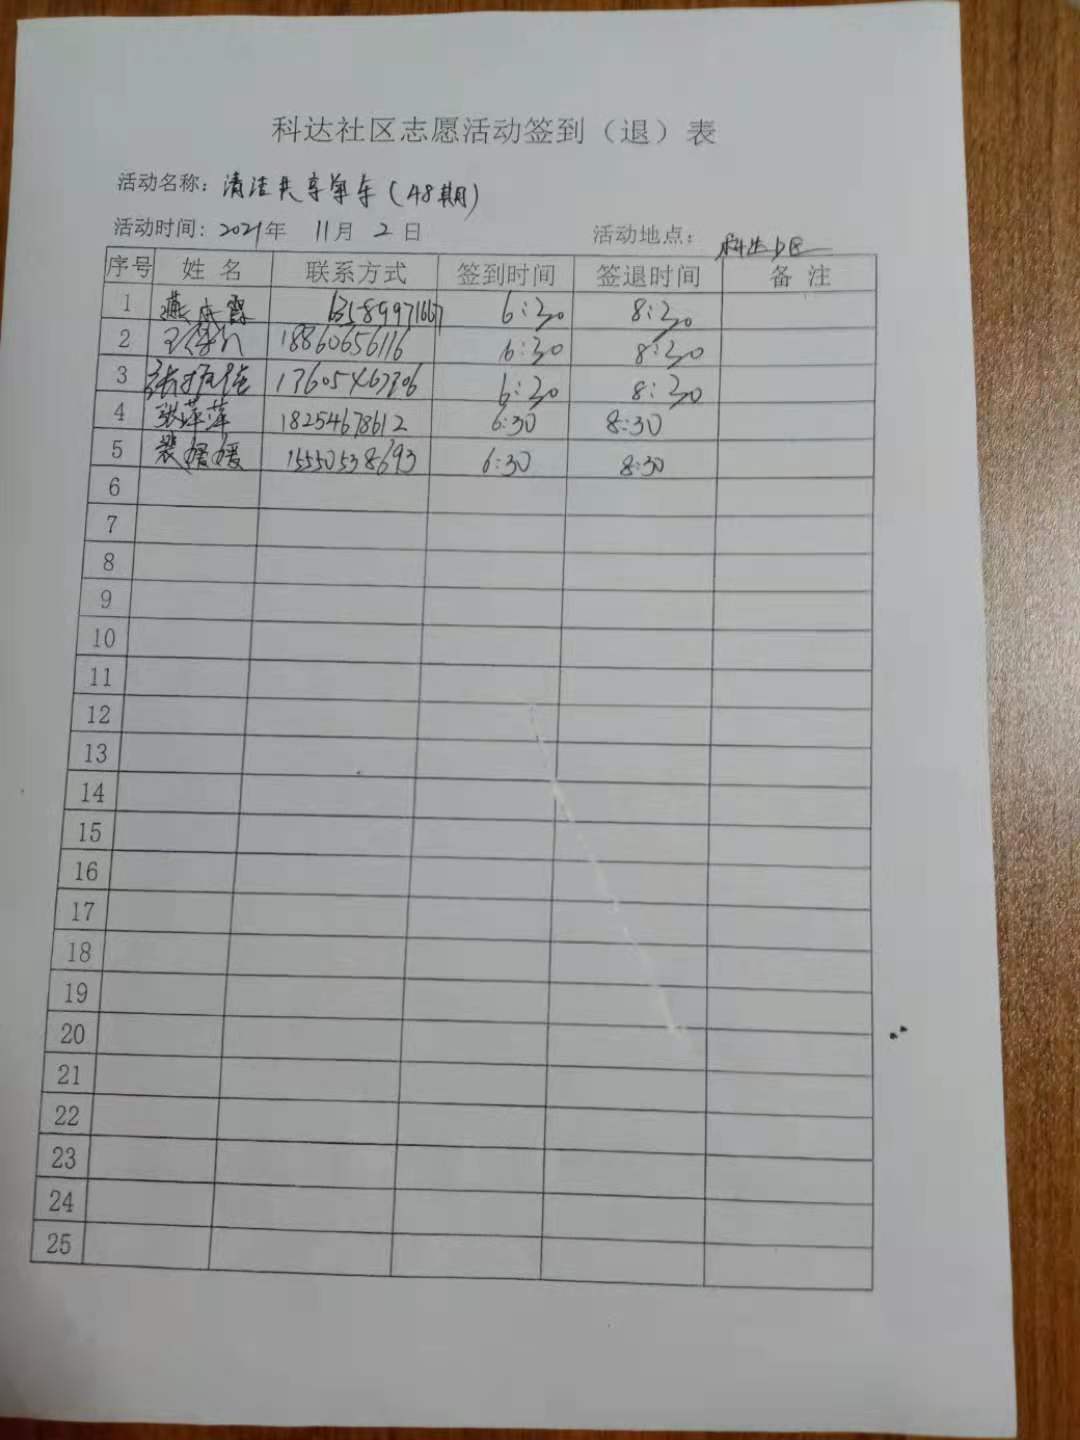 科达社区志愿活动签到（退）表
活动名称：清洁共享单车（48期）
活动时间：2021年 11月 2日 活动地点：科达小区
序号 姓名 联系方式 签到时间 签退时间 备注
1 燕 霞 6:30 8:30
2 王 18860656116 6:30 8:30
3 张 6:30 8:30
4 张萍萍 18254678612 6:30 8:30
5 裴媛媛 15550538693 6:30 8:30
6
7
8
9
10
11
12
13
14
15
16
17
18
19
20
21
22
23
24
25